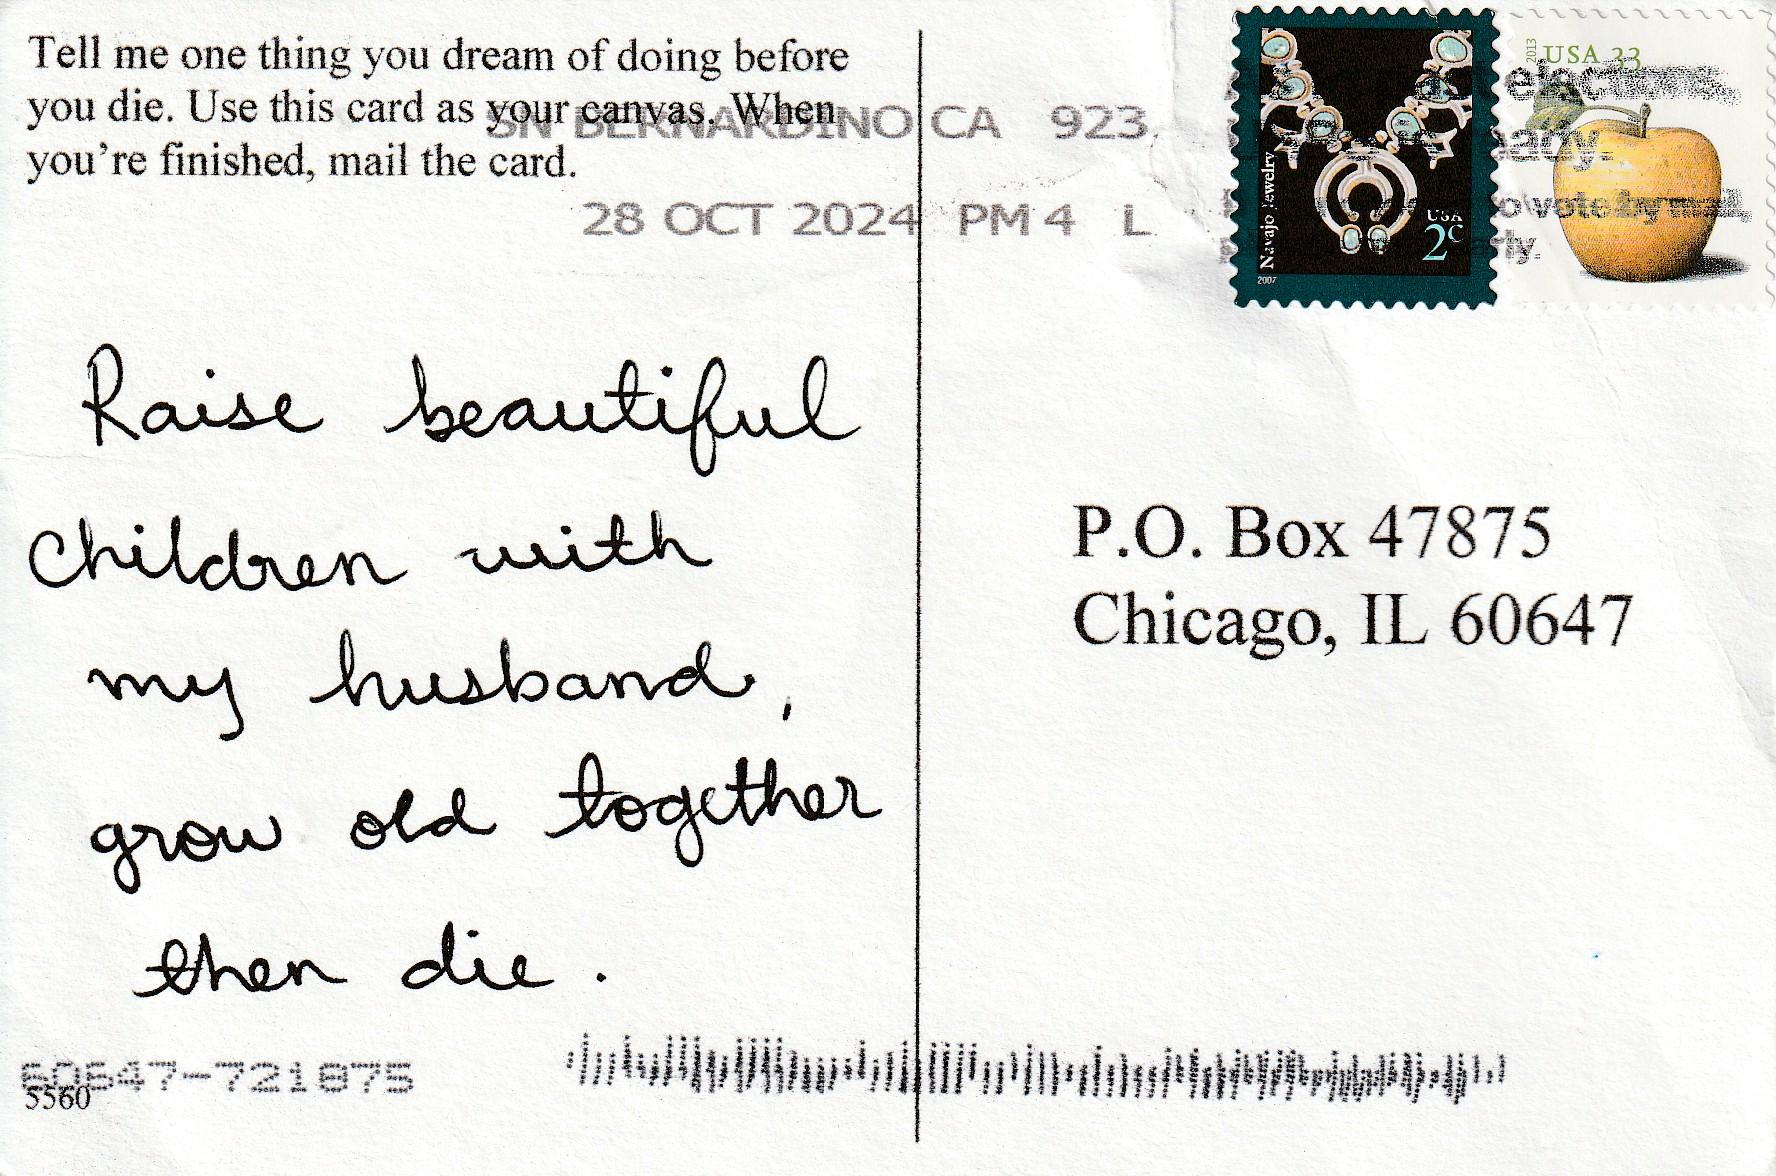 Tell me one thing you dream of doing before
you die. Use this card as your canvas. When
you're finished, mail the card.
SN BERNARDINO CA 923
28 OCT 2024 PM 4 L
Navajo Jewelry
2007
USA
2c
2013
USA 33
elections,
early.
to vote by mail,
Raise beautiful
children with
my husband,
grow old together
then die.
P.O. Box 47875
Chicago, IL 60647
60647-721875
5560